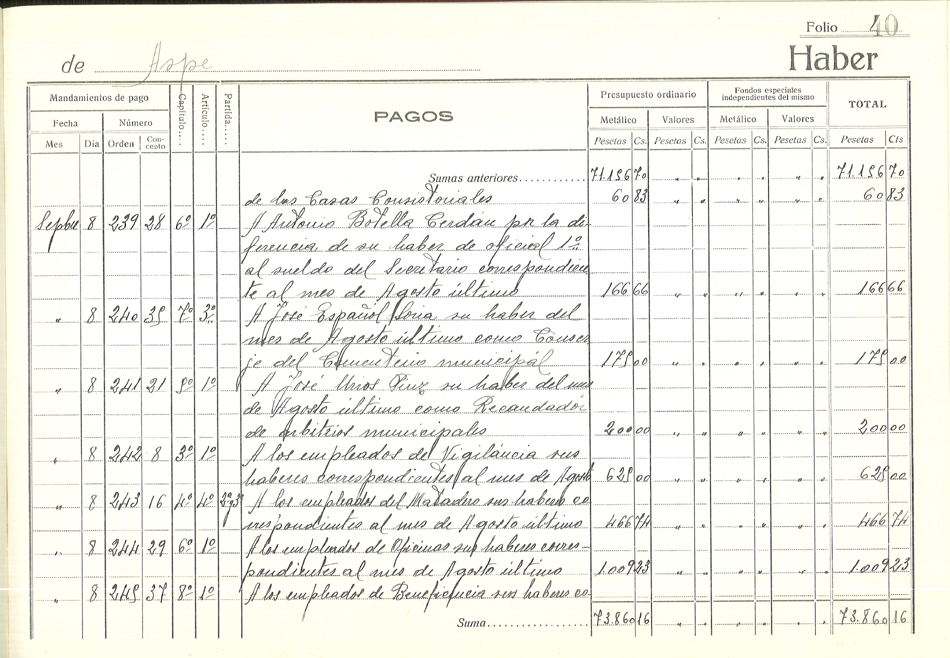 Folio 40
de Aspe Haber
Mandamientos de pago Capítulo.... Artículo.... Partida.... PAGOS Presupuesto ordinario Fondos especiales independientes del mismo TOTAL
Fecha Número Metálico Valores Metálico Valores
Mes Dia Orden Concepto Pesetas Cs. Pesetas Cs. Pesetas Cs. Pesetas Cs. Pesetas Cts
Sumas anteriores............ 71.196 70 " " " " " " 71.196 70
de las Casas Consistoriales 60 83 " " " " " " 60 83
Sepbre 8 239 28 6º 1º A Antonio Botella Cerdán por la di-
ferencia de su haber de oficial 1º
al sueldo del Secretario correspondien
te al mes de Agosto último 166 66 " " " " " " 166 66
" 8 240 35 7º 3º A José Español Soria su haber del
mes de Agosto último como Conser
je del Cementerio municipal 175 00 " " " " " " 175 00
" 8 241 21 5º 1º A José su haber del mes
de Agosto último como Recaudador
de arbitrios municipales 200 00 " " " " " " 200 00
" 8 242 8 3º 1º A los empleados de Vigiláncia sus
haberes correspondientes al mes de Agosto 625 00 " " " " " " 625 00
" 8 243 16 4º 4º A los empleados del Matadero sus haberes co
rrespondientes al mes de Agosto último 466 74 " " " " " " 466 74
" 8 244 29 6º 1º A los empleados de Oficinas sus haberes corres-
pondientes al mes de Agosto último 1.009 23 " " " " " " 1.009 23
" 8 245 37 8º 1º A los empleados de Beneficencia sus haberes co-
Suma.................. 73.860 16 " " " " " " 73.860 16